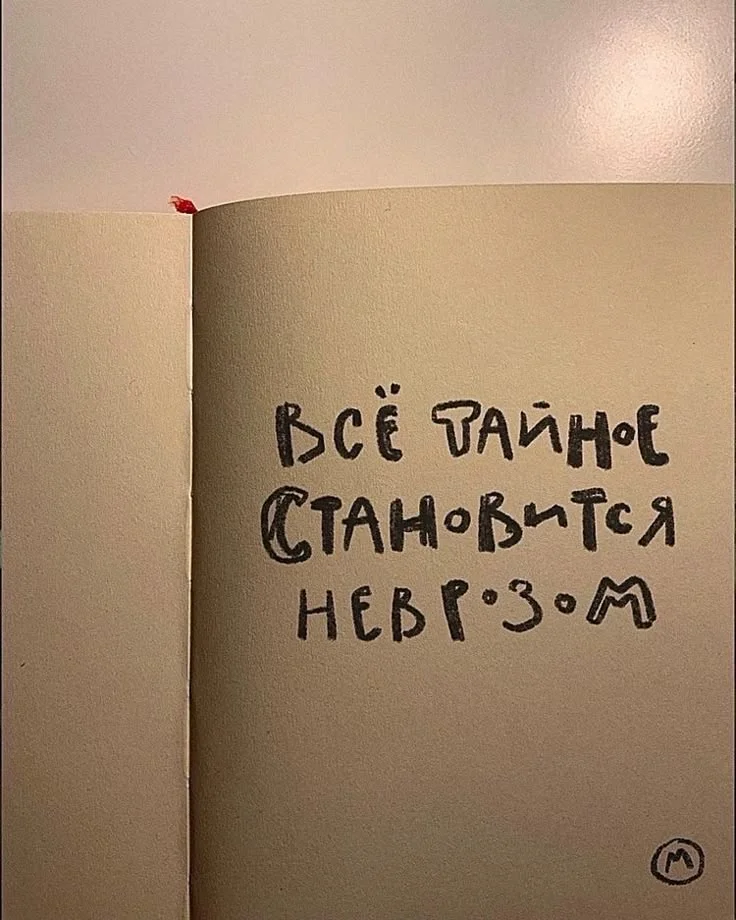 ВСЁ ТАЙНОЕ
СТАНОВИТСЯ
НЕВРОЗОМ
М